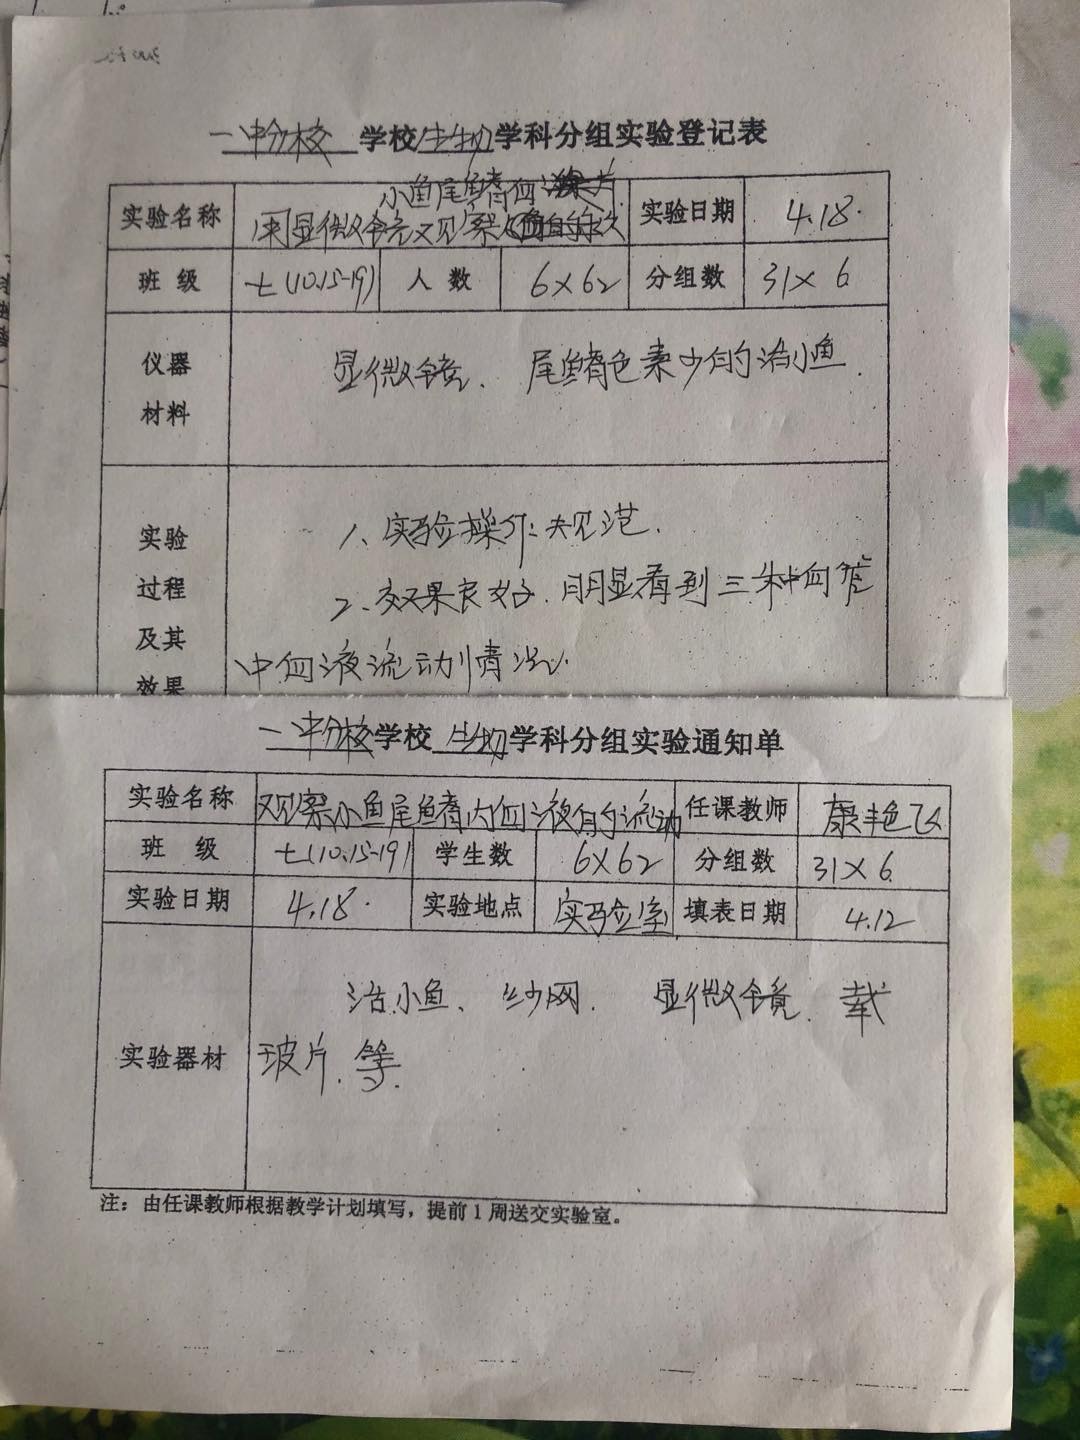 一中分校 学校 生物 学科分组实验登记表
小鱼尾鳍血
实验名称 用显微镜观察 实验日期 4.18.
班 级 七(10.15-19) 人 数 6×62 分组数 31×6
仪器
材料 显微镜、 尾鳍色素少的活小鱼.
实验
过程
及其
效果
1、实验操作规范.
2、效果良好.明显看到三种血管
中血液流动情况.
一中分校 学校 生物 学科分组实验通知单
实验名称 观察小鱼尾鳍内血液的流动 任课教师 康艳
班 级 七(10.15-19) 学生数 6×62 分组数 31×6
实验日期 4.18. 实验地点 实验室 填表日期 4.12
实验器材 活小鱼、纱网. 显微镜. 载
玻片.等.
注：由任课教师根据教学计划填写，提前1周送交实验室。